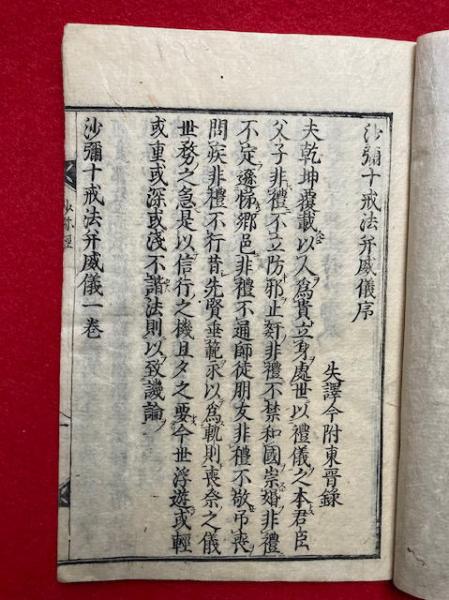 沙彌十戒法并威儀序
失譯今附東晋錄
夫乾坤覆載以人爲貴立身處世以禮儀之本君臣
父子非禮不立防邪止姧非禮不禁和國崇婚非禮
不定遜悌鄉邑非禮不通師徒朋友非禮不敬吊喪
問疾非禮不行昔先賢垂範永以爲軌則喪祭之儀
世務之急是以信行之機且夕之要今世浮遊或輕
或重或深或淺不諳法則以致譏論
沙彌十戒法并威儀一卷